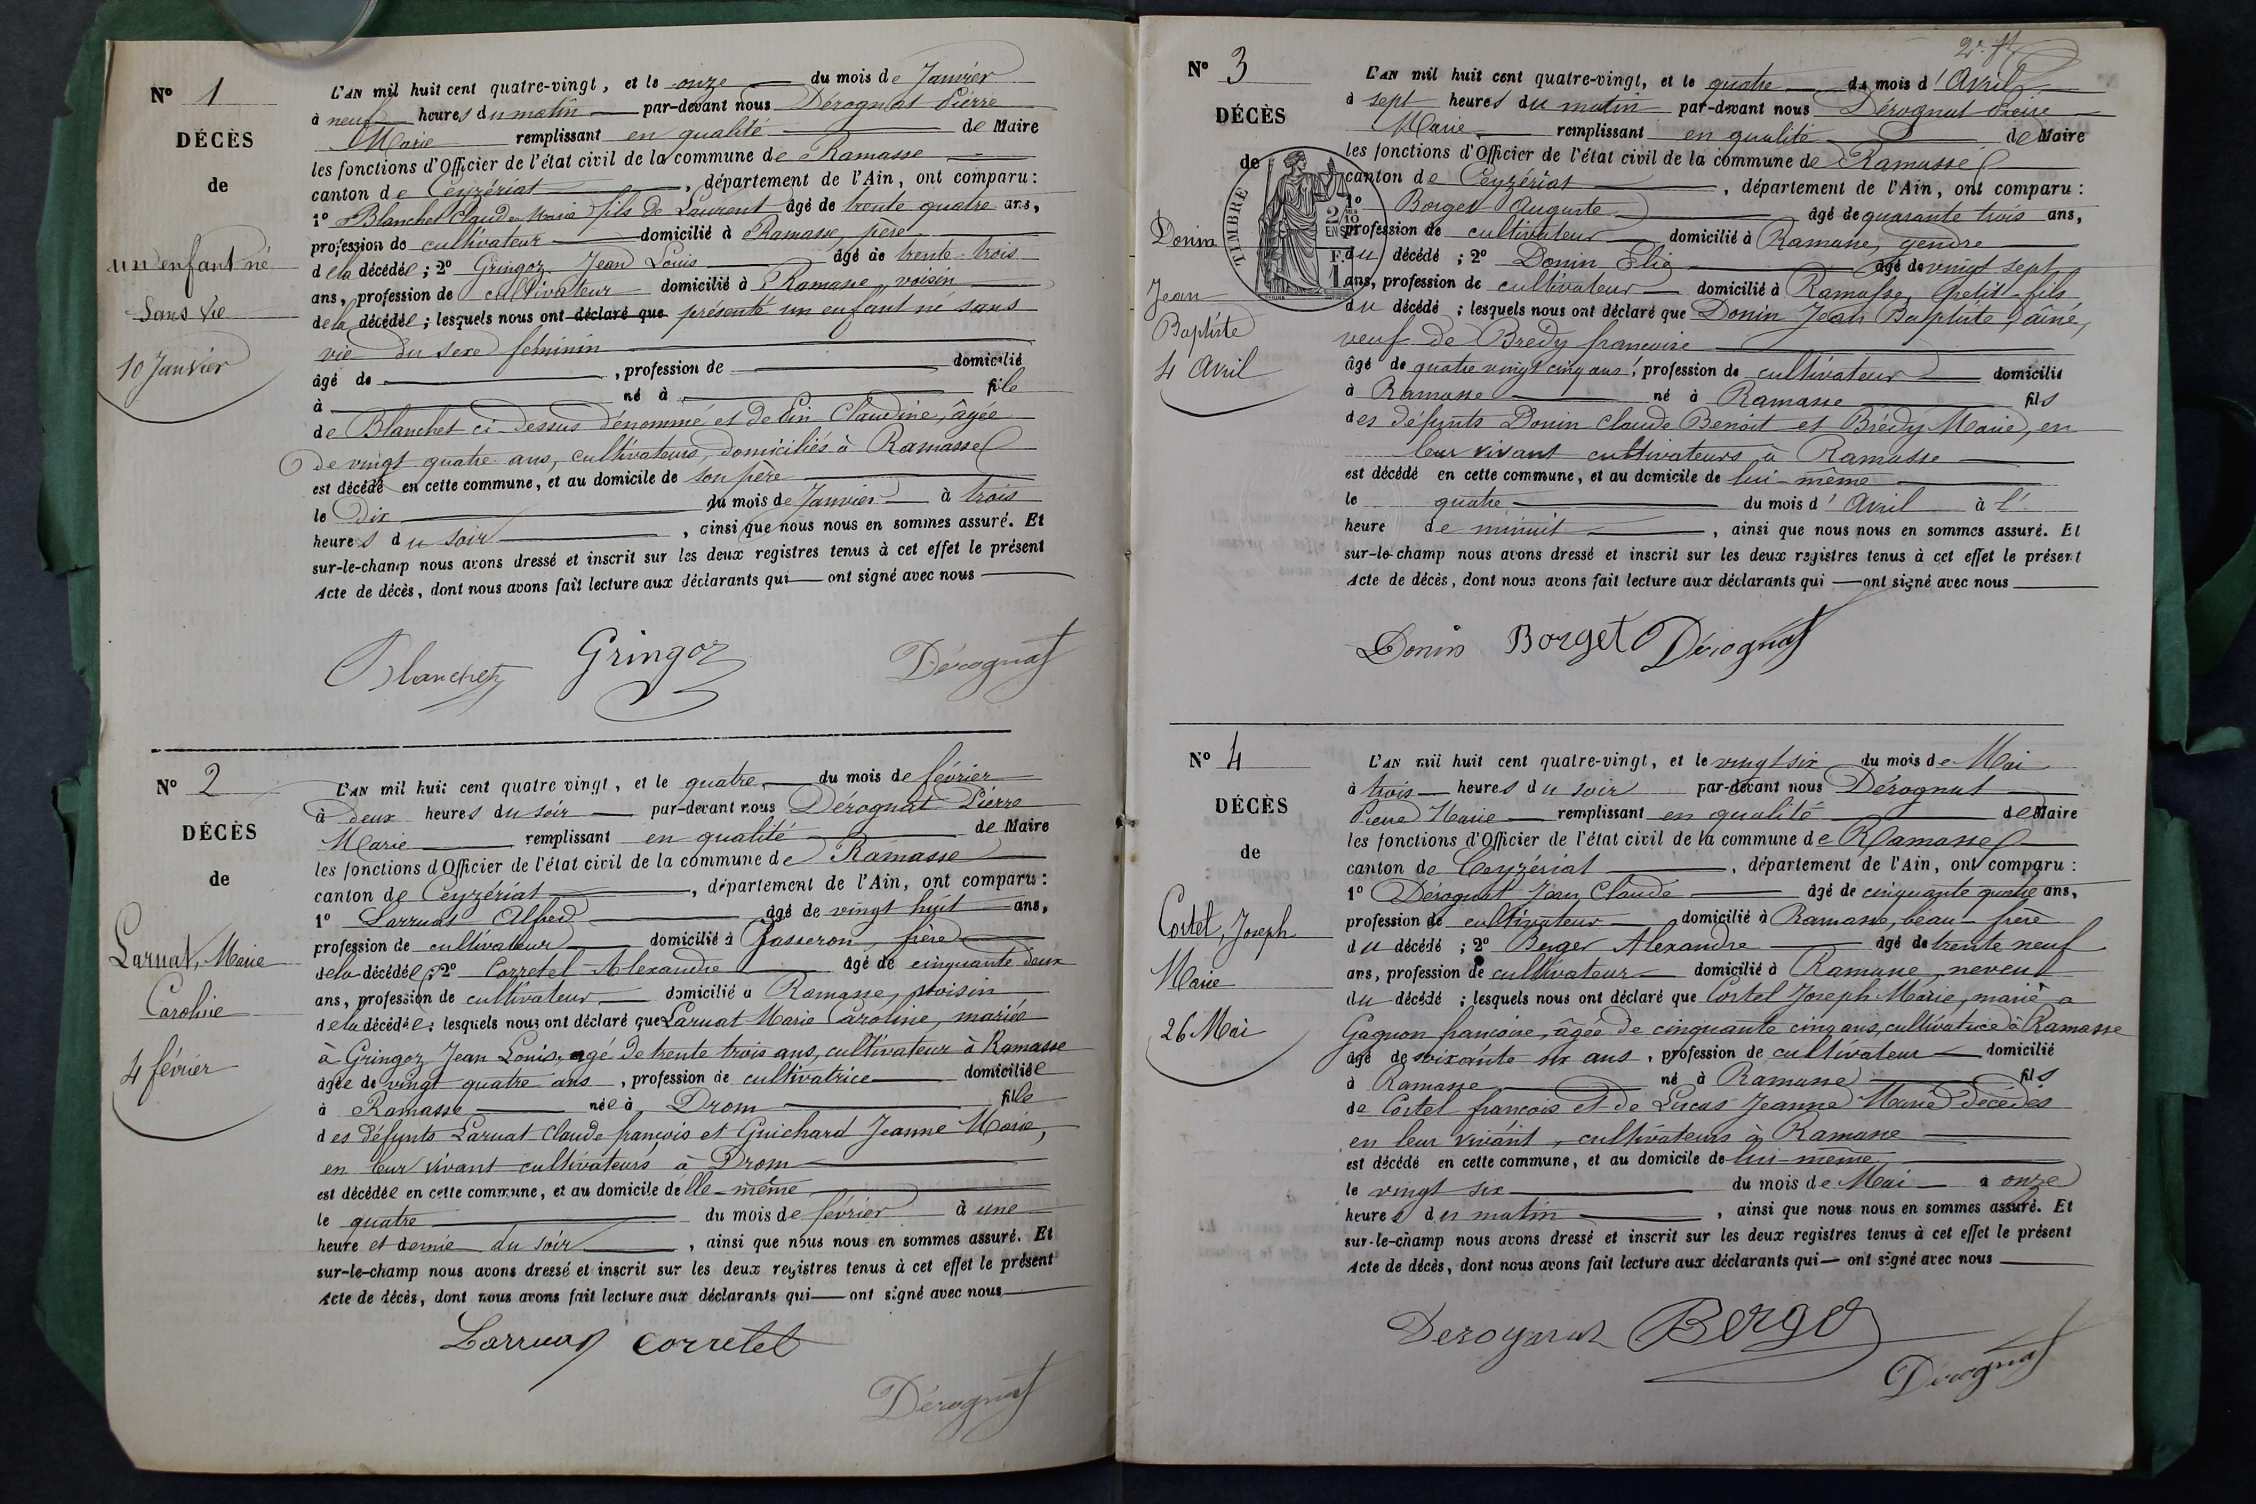 N° 1
DÉCÈS
de
un enfant né
sans vie
10 Janvier
L'AN mil huit cent quatre-vingt, et le onze du mois de Janvier
à neuf heures du matin par-devant nous Dérognat Pierre
Marie remplissant en qualité de Maire
les fonctions d'Officier de l'état civil de la commune de Ramasse
canton de Ceyzériat, département de l'Ain, ont comparu :
1° Blanchet Claude Marie fils de Laurent âgé de trente quatre ans,
profession de cultivateur domicilié à Ramasse, père
de la décédée ; 2° Gringoz Jean Louis âgé de trente-trois
ans, profession de cultivateur domicilié à Ramasse, voisin
de la décédée ; lesquels nous ont déclaré que présenté un enfant né sans
vie du sexe féminin
âgé de , profession de domicilié
à né à fille
de Blanchet ci-dessus dénommé et de Pin Claudine, âgée
de vingt quatre ans, cultivateurs, domiciliés à Ramasse
est décédé en cette commune, et au domicile de son père
le Dix du mois de Janvier à trois
heures du soir , ainsi que nous nous en sommes assuré. Et
sur-le-champ nous avons dressé et inscrit sur les deux registres tenus à cet effet le présent
Acte de décès, dont nous avons fait lecture aux déclarants qui ont signé avec nous
Blanchet Gringoz Dérognat
N° 2
DÉCÈS
de
Laruat, Marie
Caroline
4 février
L'AN mil huit cent quatre vingt, et le quatre du mois de février
à Deux heures du soir par-devant nous Dérognat Pierre
Marie remplissant en qualité de Maire
les fonctions d'Officier de l'état civil de la commune de Ramasse
canton de Ceyzériat , département de l'Ain, ont comparu :
1° Larruat Alfred âgé de vingt huit ans,
profession de cultivateur domicilié à Jasseron, frère
de la décédée ; 2° Corretel Alexandre âgé de cinquante deux
ans, profession de cultivateur domicilié à Ramasse, voisin
de la décédée ; lesquels nous ont déclaré que Laruat Marie Caroline, mariée
à Gringoz Jean Louis, agé de trente trois ans, cultivateur à Ramasse
âgée de vingt quatre ans , profession de cultivatrice domiciliée
à Ramasse née à Drom fille
des défunts Laruat Claude françois et Guichard Jeanne Marie,
en leur vivant cultivateurs à Drom
est décédée en cette commune, et au domicile d'elle-même
le quatre du mois de février à une
heure et demie du soir , ainsi que nous nous en sommes assuré. Et
sur-le-champ nous avons dressé et inscrit sur les deux registres tenus à cet effet le présent
Acte de décès, dont nous avons fait lecture aux déclarants qui ont signé avec nous
Larruat Corretel
Dérognat
2e ft
N° 3
DÉCÈS
de
Donin
Jean
Baptiste
4 Avril
TIMBRE
2/10 EN SUS
L'AN mil huit cent quatre-vingt, et le quatre du mois d'Avril
à sept heures du matin par-devant nous Dérognat Pierre
Marie remplissant en qualité de Maire
les fonctions d'Officier de l'état civil de la commune de Ramasse
canton de Ceyzériat , département de l'Ain, ont comparu :
1° Borget Auguste âgé de quarante trois ans,
profession de cultivateur domicilié à Ramasse, gendre
du décédé ; 2° Donin Elie âgé de vingt sept
ans, profession de cultivateur domicilié à Ramasse, petit-fils
du décédé ; lesquels nous ont déclaré que Donin Jean Baptiste, aîné,
veuf de Bredy françoise
âgé de quatre vingt cinq ans, profession de cultivateur domicilié
à Ramasse né à Ramasse fils
des défunts Donin Claude Benoit et Brédy Marie, en
leur vivant cultivateurs à Ramasse
est décédé en cette commune, et au domicile de lui-même
le quatre du mois d'Avril à l'
heure de minuit , ainsi que nous nous en sommes assuré. Et
sur-le-champ nous avons dressé et inscrit sur les deux registres tenus à cet effet le présent
Acte de décès, dont nous avons fait lecture aux déclarants qui ont signé avec nous
Donin Borget Dérognat
N° 4
DÉCÈS
de
Cortet, Joseph
Marie
26 Mai
L'AN mil huit cent quatre-vingt, et le vingt six du mois de Mai
à trois heures du soir par-devant nous Dérognat
Pierre Marie remplissant en qualité de Maire
les fonctions d'Officier de l'état civil de la commune de Ramasse
canton de Ceyzériat , département de l'Ain, ont comparu :
1° Dérognat Jean Claude âgé de cinquante quatre ans,
profession de cultivateur domicilié à Ramasse, beau-frère
du décédé ; 2° Berger Alexandre âgé de trente neuf
ans, profession de cultivateur domicilié à Ramasse, neveu
du décédé ; lesquels nous ont déclaré que Cortet Joseph Marie, marié a
Gagnon françoise, âgée de cinquante cinq ans, cultivatrice à Ramasse
âgé de soixante six ans , profession de cultivateur domicilié
à Ramasse né à Ramasse fils
de Cortet françois et de Lucas Jeanne Marie décédés
en leur vivant, cultivateurs à Ramasse
est décédé en cette commune, et au domicile de lui-même
le vingt six du mois de Mai à onze
heures du matin , ainsi que nous nous en sommes assuré. Et
sur-le-champ nous avons dressé et inscrit sur les deux registres tenus à cet effet le présent
Acte de décès, dont nous avons fait lecture aux déclarants qui ont signé avec nous
Derognat Berger
Dérognat